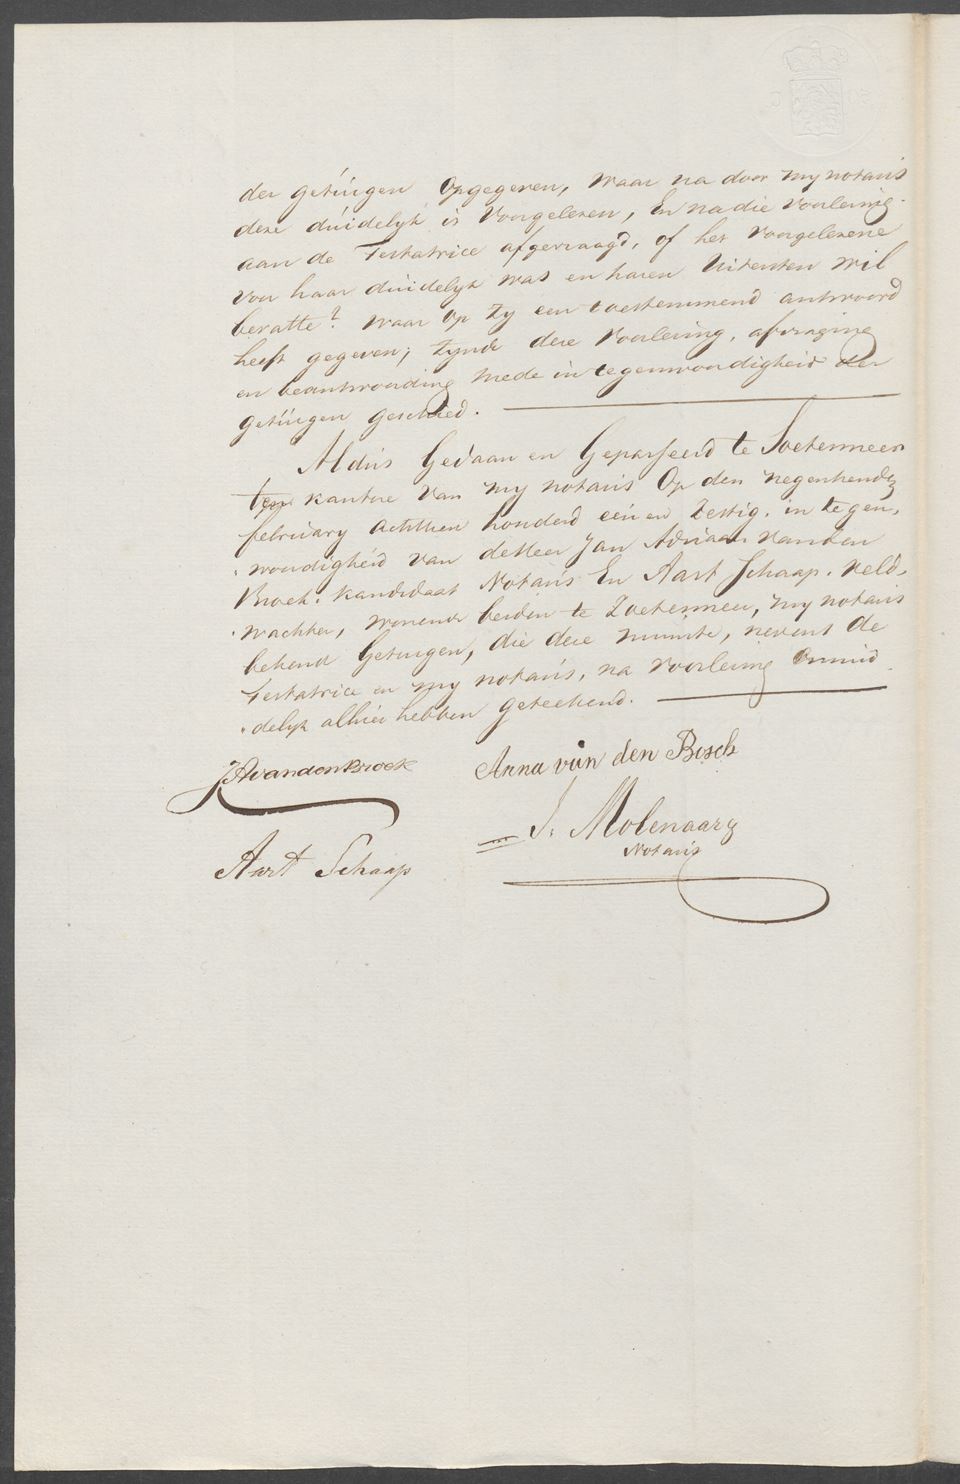 der getuigen Opgegeven, waar na door my notaris
deze duidelyk is voorgelezen, En na die voorlezing
aan de Testatrice afgevraagd, of het voorgelezene
voor haar duidelyk was en haren Uitersten wil
bevatte? waar op zy een toestemmend antwoord
heeft gegeven; zynde deze Voorlezing, afvraging
en beantwoording mede in tegenwoordigheid der
getuigen geschied.
Aldus Gedaan en Gepasseerd te Soetermeer
ten kantore van my notaris Op den negentienden
february achttien honderd een en zestig, in tegen,
woordigheid van de Heer Jan Adriaan van den
Broek, kandidaat Notaris En Aart Schaap, veld,
wachter, wonende beiden te Zoetermeer, my notaris
bekend Getuigen, die deze minute, nevens de
Testatrice en my notaris, na voorlezing Onmid
delyk alhier hebben geteekend.
JA van den Broek Anna van den Bosch
J. Molenaar
Notaris
Aart Schaap